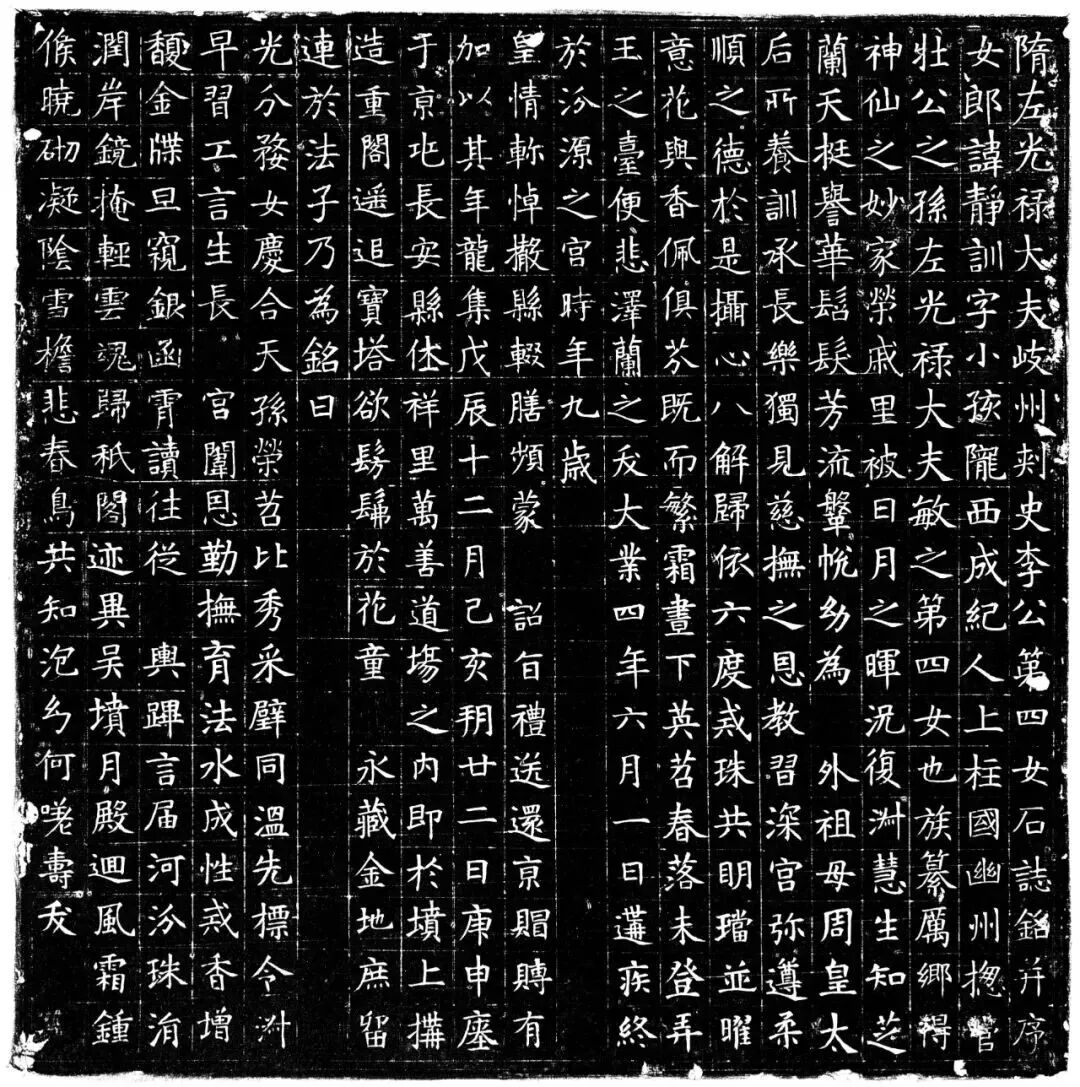 隋左光禄大夫岐州刾史李公第四女石誌銘并序
女郎諱静訓字小孩隴西成紀人上柱國幽州揔管
壮公之孫左光禄大夫敏之第四女也族纂厲郷得
神仙之妙家榮戚里被日月之暉况復淋慧生知芝
蘭天挺譽華髫髮芳流鞶帨幼為　外祖母周皇太
后所養訓承長樂獨見慈撫之恩教習深宫弥遵柔
順之德於是攝心八解歸依六度戒珠共明璫並曜
意花與香佩俱芬既而繁霜晝下英苕春落未登弄
玉之臺便悲澤蘭之夭大業四年六月一日遘疾終
於汾源之宫時年九歲
皇情軫悼撤縣輟膳頻蒙　詔旨禮送還京賵賻有
加以其年龍集戊辰十二月己亥朔廿二日庚申瘞
于京兆長安縣休祥里萬善道場之内即於墳上搆
造重閣遥追寶塔欲髣髴於花童　永藏金地庶留
連於法子乃為銘曰
光分婺女慶合天孫榮苕比秀采璧同温先標令淋
早習工言生長　宫闈恩勤撫育法水成性戒香増
馥金牒旦窺銀函霄讀往從　輿蹕言届河汾珠涓
潤岸鏡掩輕雲魂歸秖閣迹異吴墳月殿迴風霜鍾
候曉砌凝陰雪檐悲春鳥共知泡幻何嗟壽夭